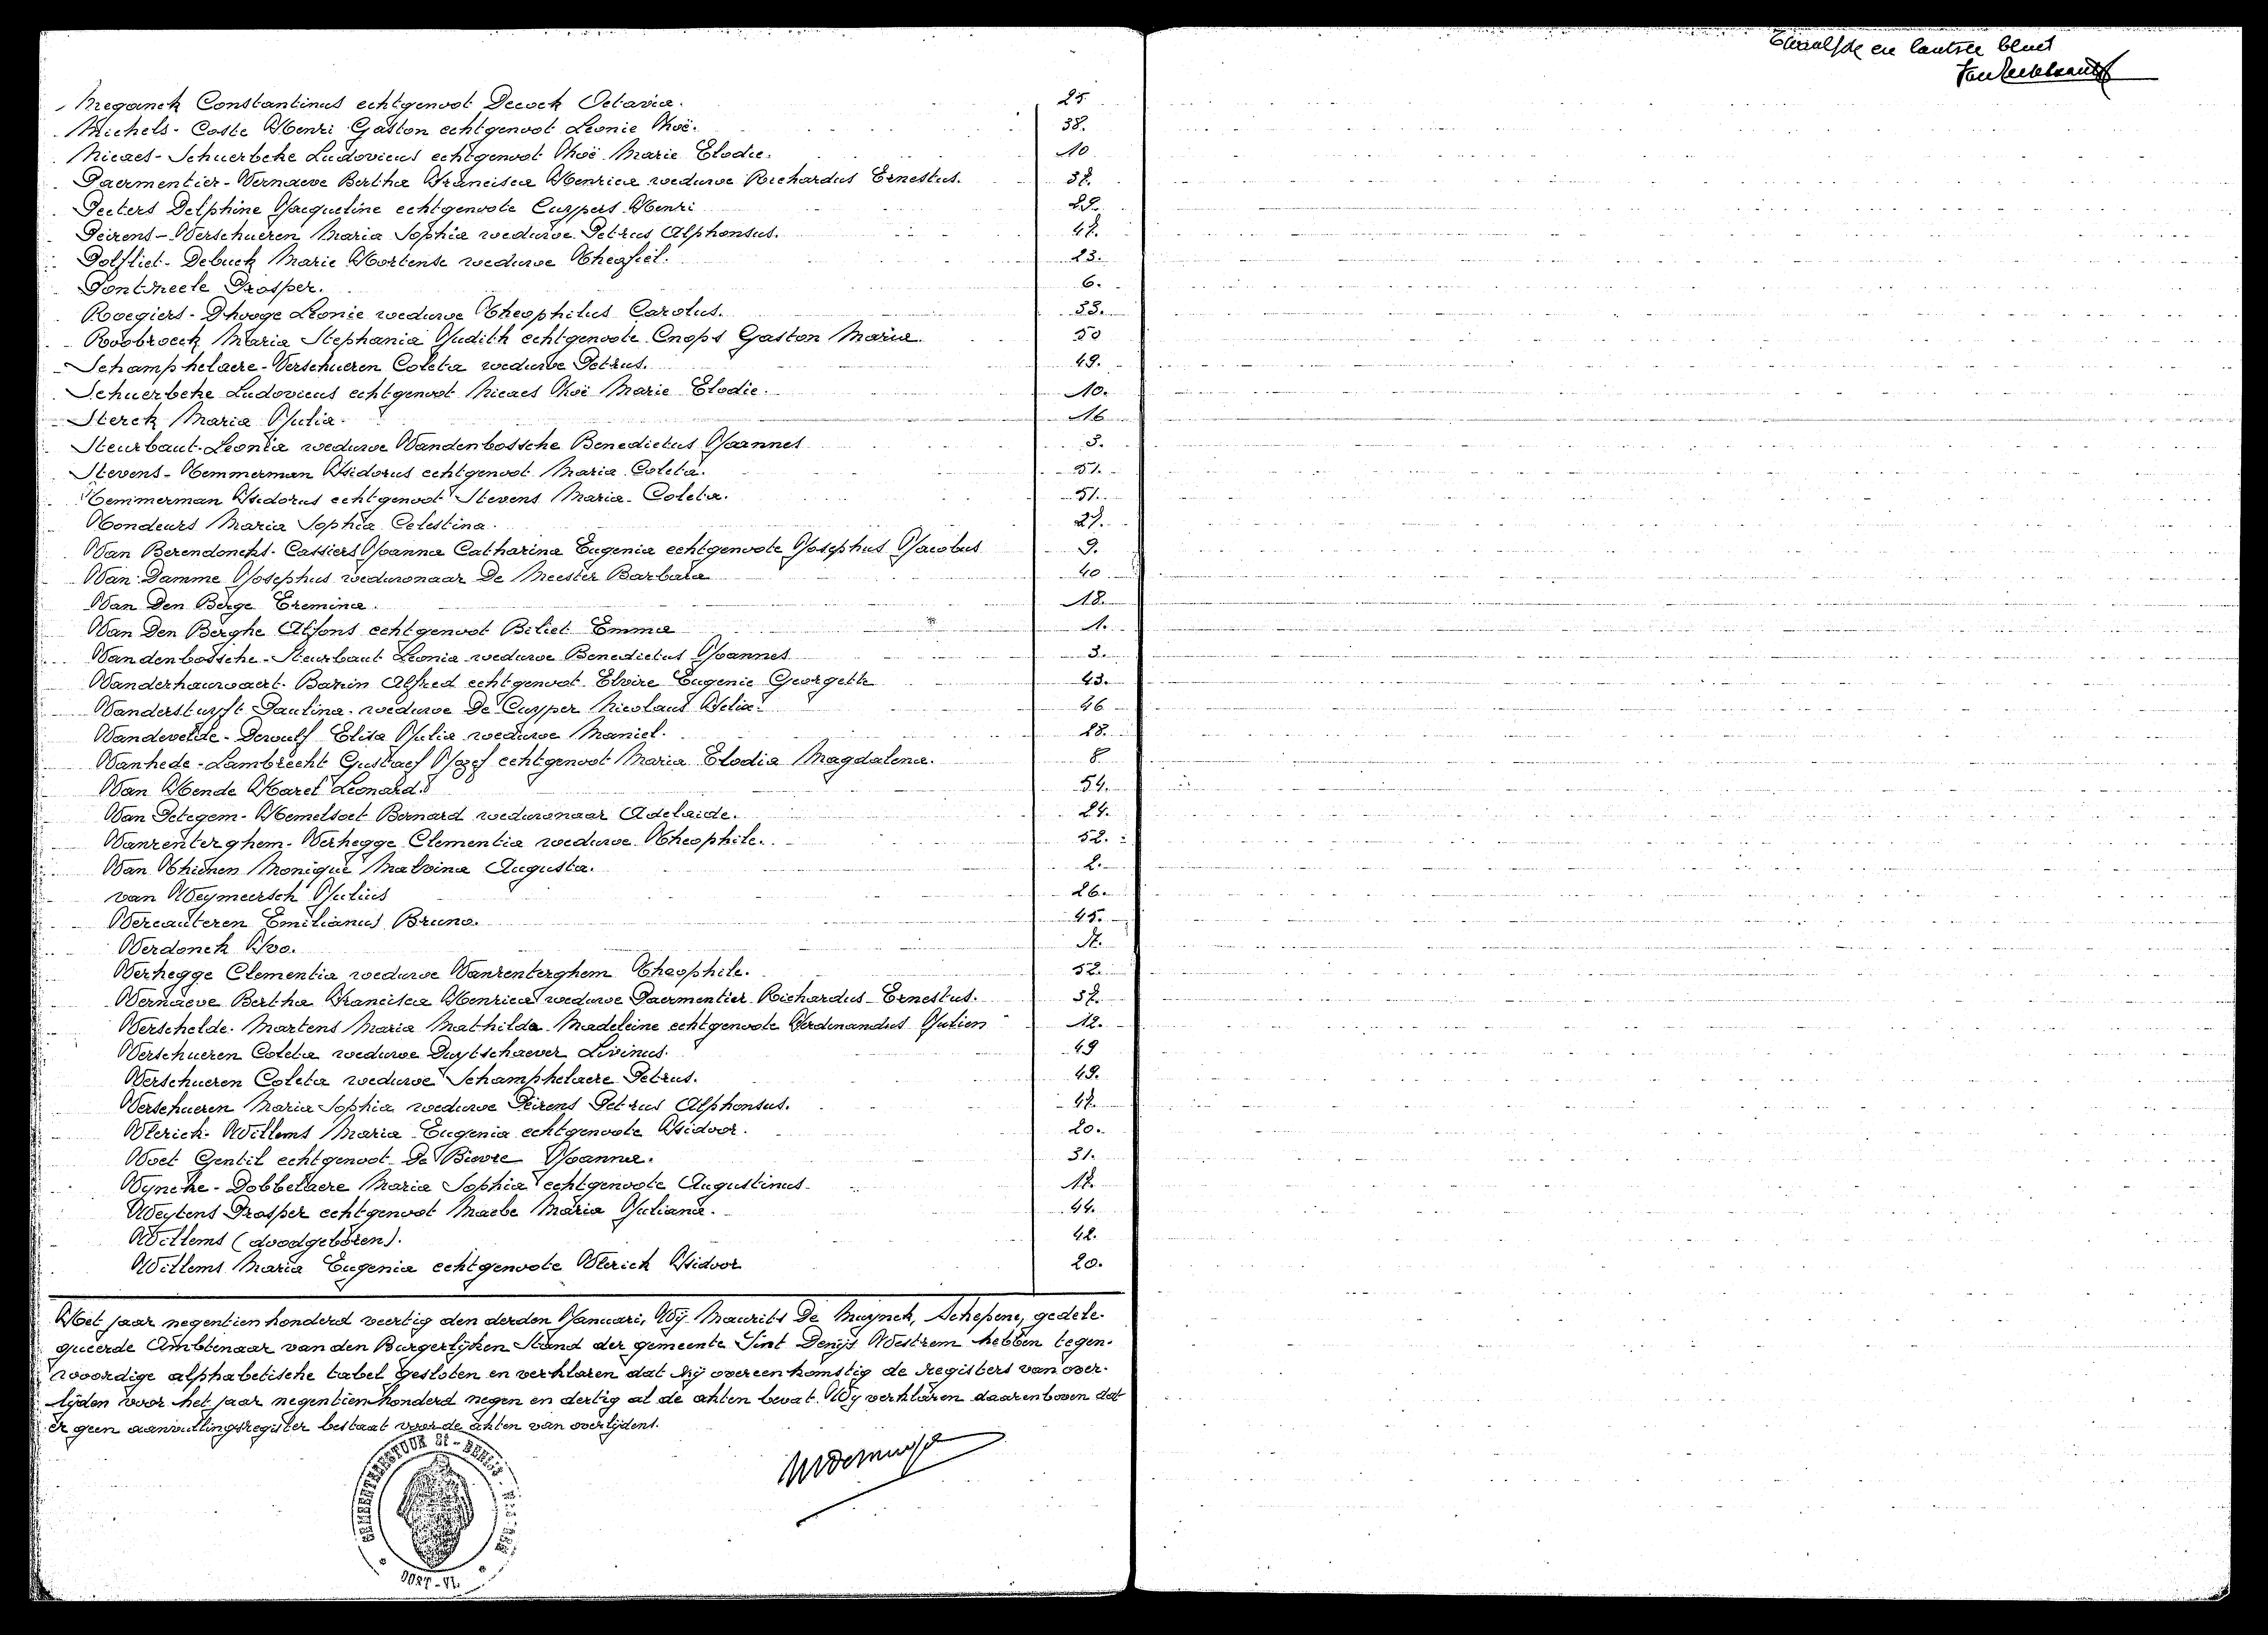 Meganck Constantinus echtgenoot Decock Octavia. 25
Michels-Coste Henri Gaston echtgenoot Leonie Zoë. 38.
Nicaes-Schuerbeke Ludovicus echtgenoot Zoë Marie Elodie. 10
Parmentier-Vernaeve Bertha Francisca Henrica weduwe Richardus Ernestus. 37.
Peeters Delphine Jacqueline echtgenoote Cuypers Henri 22.
Peirens-Verschueren Maria Sophia weduwe Petrus Alphonsus. 47.
Polfliet-Debuck Marie Hortense weduwe Theofiel. 23.
Pontzeele Prosper. 6.
Roegiers-Dhooge Leonie weduwe Theophilus Carolus. 33.
Roobroeck Maria Stephania Judith echtgenoote Cnops Gaston Maria. 50
Schamphelaere-Verschueren Coleta weduwe Petrus. 49.
Schuerbeke Ludovicus echtgenoot Nicaes Zoë Marie Elodie. 10.
Sterck Maria Julia. 16
Steurbaut Leonia weduwe Vandenbossche Benedictus Joannes 3.
Stevens-Temmerman Isidorus echtgenoot Maria Coleta. 51.
Temmerman Isidorus echtgenoot Stevens Maria-Coleta. 51.
Tondeurs Maria Sophia Celestina. 27.
Van Berendoncks-Cassiers Joanna Catharina Eugenia echtgenoote Josephus Jacobus 9.
Van Damme Josephus weduwnaar De Meester Barbara 40
Van Den Berge Eremina. 18.
Van Den Berghe Alfons echtgenoot Biliet Emma 1.
Vandenbossche-Steurbaut Leonia weduwe Benedictus Joannes 3.
Vanderhauwaert-Bazin Alfred echtgenoot Elvire Eugenie Georgette 43.
Vanderstuyft Paulina weduwe De Cuyper Nicolaus Felix. 46
Vandevelde-Dewulf Elisa Julia weduwe Maniel. 28.
Vanhede-Lambrecht Gustaef Jozef echtgenoot Maria Elodia Magdalena. 8
Van Hende Karel Leonard. 54.
Van Petegem-Hemelsoet Bernard weduwnaar Adelaide. 24.
Vanrenterghem-Verhegge Clementia weduwe Theophile. 52.
Van Thienen Monique Malvina Augusta. 2.
van Weymeersch Julius 26.
Vercauteren Emilianus Bruno. 45.
Verdonck Ivo.
Verhegge Clementia weduwe Vanrenterghem Theophile. 52.
Vernaeve Bertha Francisca Henrica weduwe Paermentier Richardus-Ernestus. 37.
Verschelde-Martens Maria Mathilda Madeleine echtgenoote Ferdinandus Julien 12.
Verschueren Coleta weduwe Duytschaever Livinus. 49
Verschueren Coleta weduwe Schamphelaere Petrus. 49.
Verschueren Maria Sophia weduwe Peirens Petrus Alphonsus. 47.
Vlerick-Willems Maria Eugenia echtgenoote Isidoor. 20.
Voet Gentil echtgenoot De Bievre Joanna. 31.
Vyncke-Dobbelaere Maria Sophia echtgenoote Augustinus 17.
Weytens Prosper echtgenoot Maebe Maria Juliana. 44.
Willems (doodgeboren). 42.
Willems Maria Eugenia echtgenoote Vlerick Isidoor 20.
Het jaar negentien honderd veertig den derden Januari, Wij Maurits De Muynck, Schepene, gedele-
gueerde Ambtenaar van den Burgerlijken Stand der gemeente Sint Denijs Westrem hebben tegen-
woordige alphabetische tabel gesloten en verklaren dat hij overeenkomstig de registers van over-
lijden voor het jaar negentien honderd negen en dertig al de akten bevat. Wij verklaren daarenboven dat
er geen aanvullingsregister bestaat voor de akten van overlijdens.